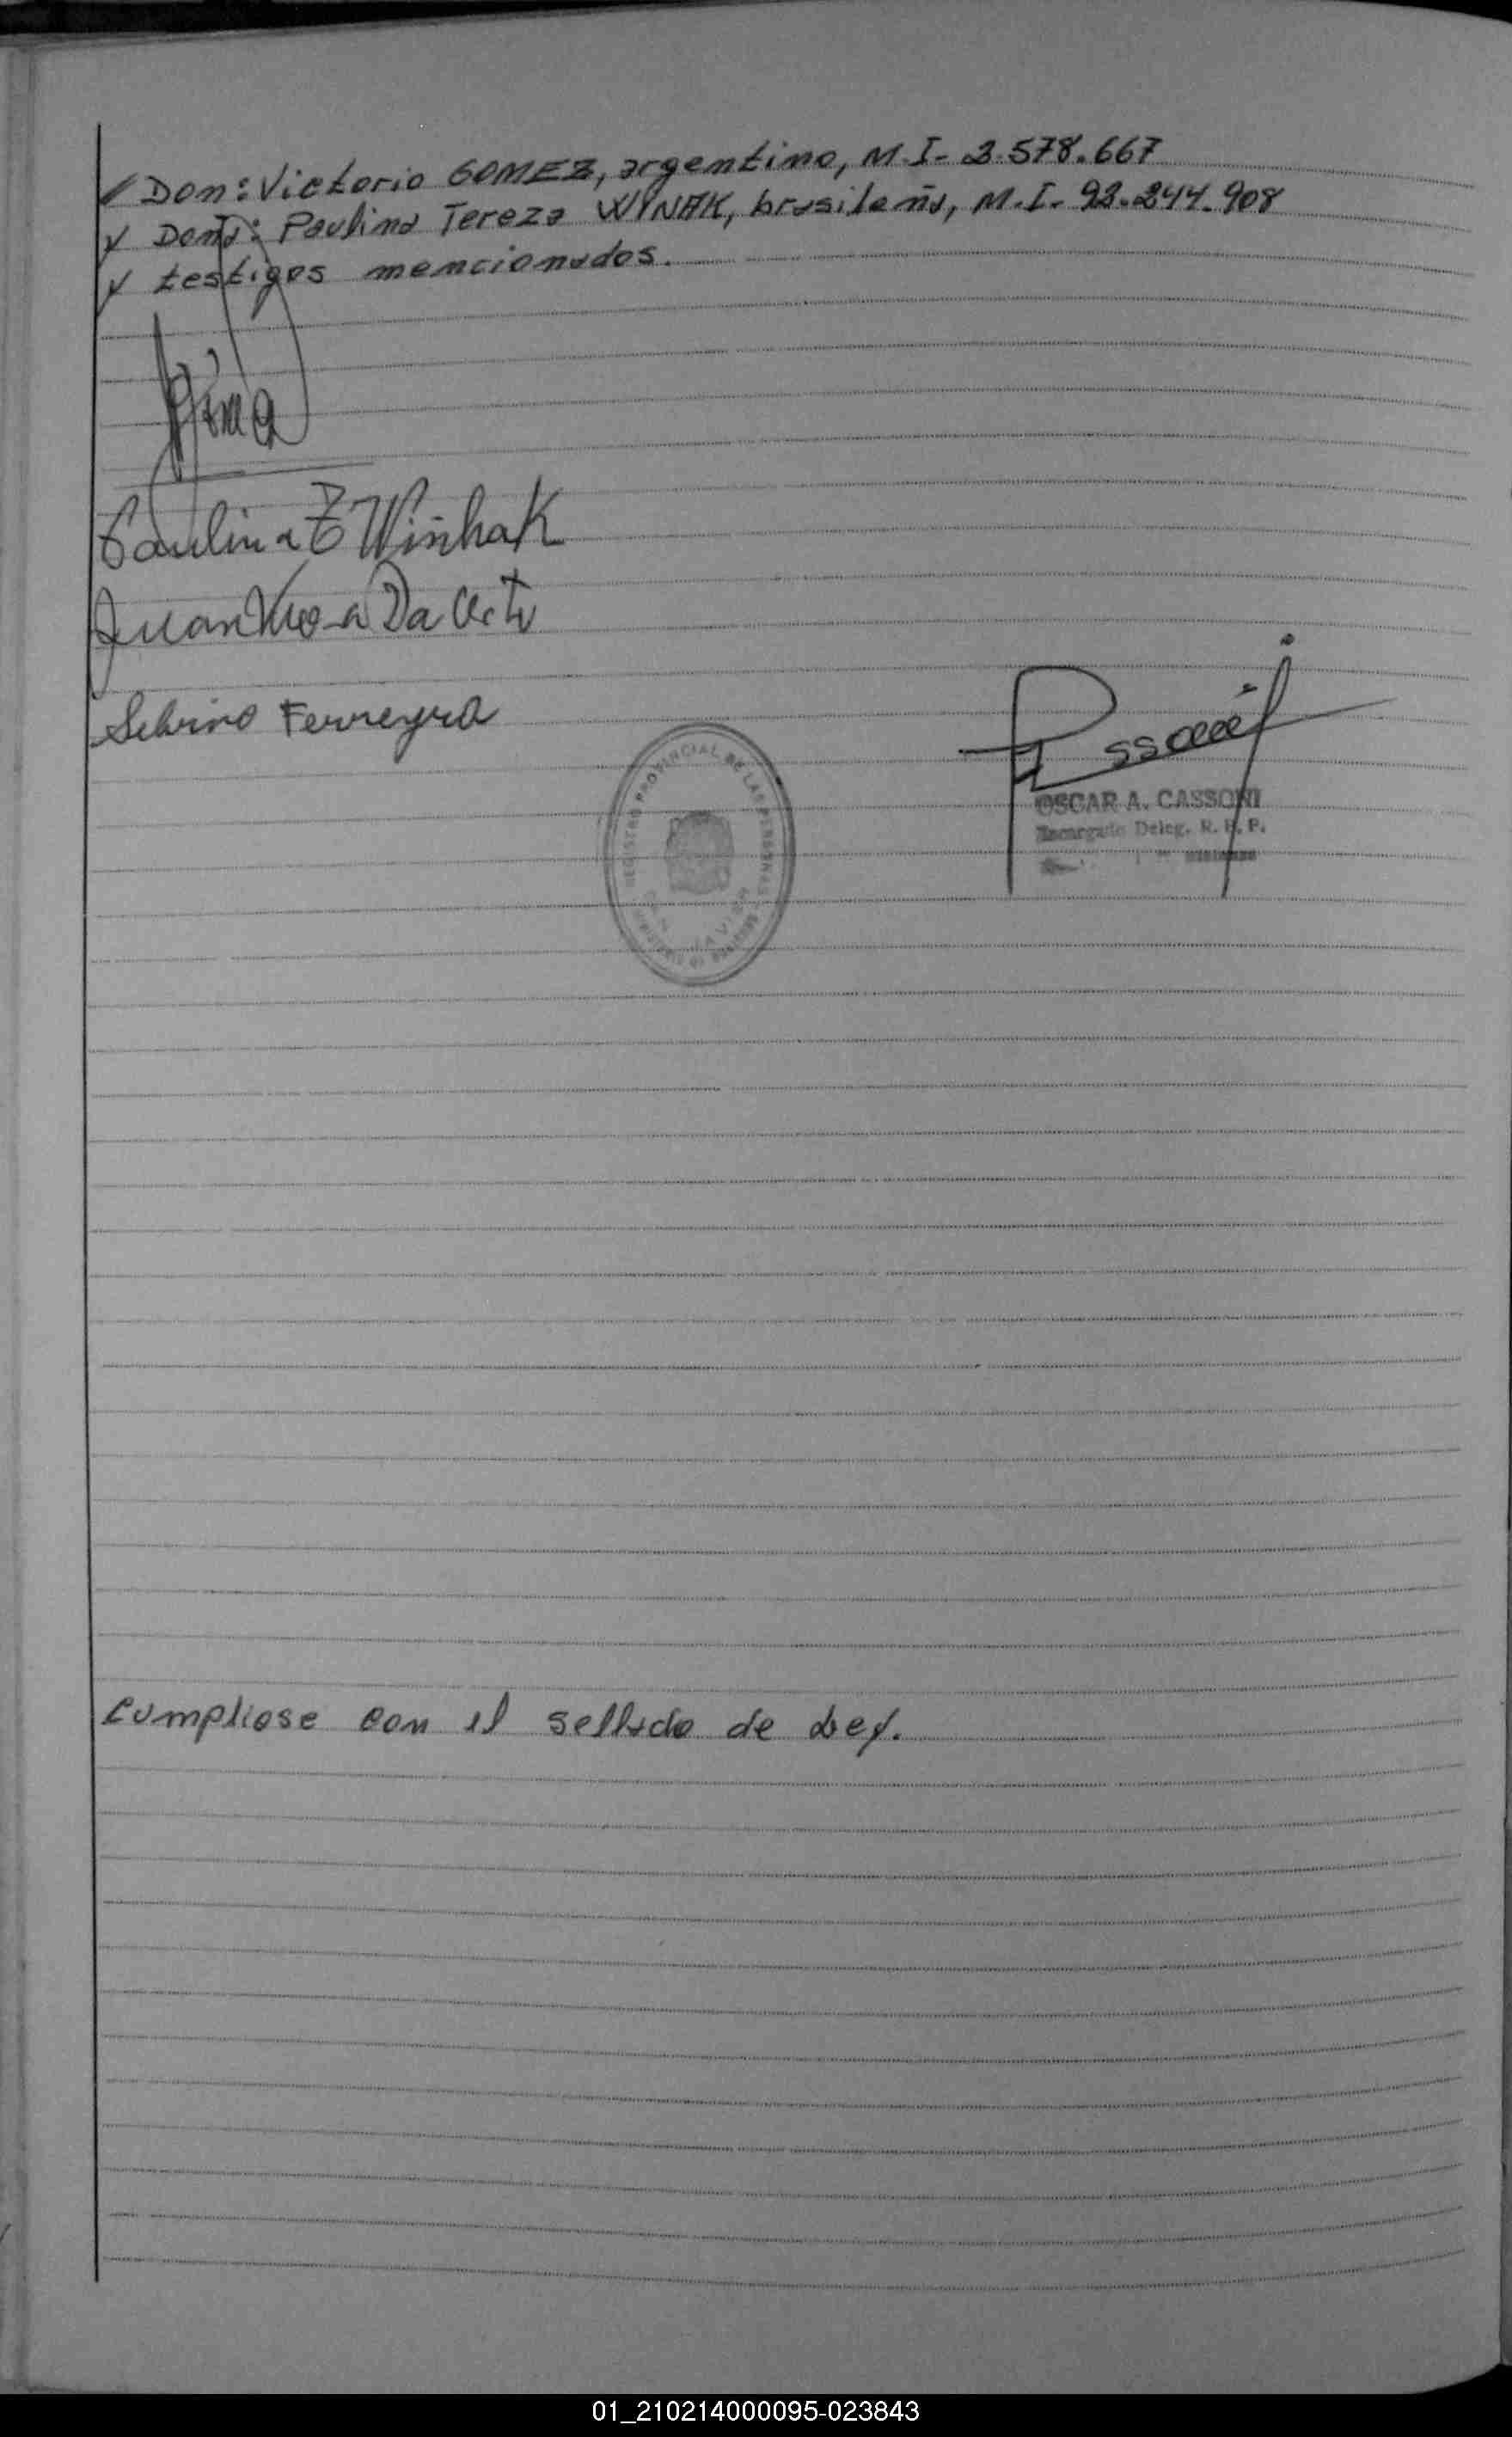 Don: Victorio GOMEZ, argentino, M.I- 3.578.667
y Doña: Paulina Tereza WINAK, brasileña, M.I- 92.244.908
y testigos mencionados.
Paulina T Wiñhak
Juan Da
Silvino Ferreyra
REGISTRO PROVINCIAL DE LAS PERSONAS
OSCAR A. CASSONI
Encargado Deleg. R. P. P.
Cumpliose con el sellado de Ley.
01_210214000095-023843